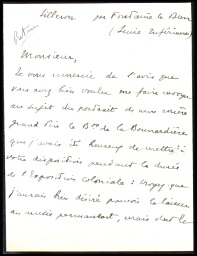 par Fontaine le Dun
(Seine Inférieure)
Monsieur,
Je vous remercie de l'avis que
vous avez bien voulu me faire envoyer
au sujet du portrait de mon arrière
grand père le Bon de la Bourdonnière
que j'avais été heureux de mettre à
votre disposition pendant la durée
de l'Exposition coloniale : croyez que
j'aurais bien désiré pouvoir le laisser
au musée permanent, mais c'est le